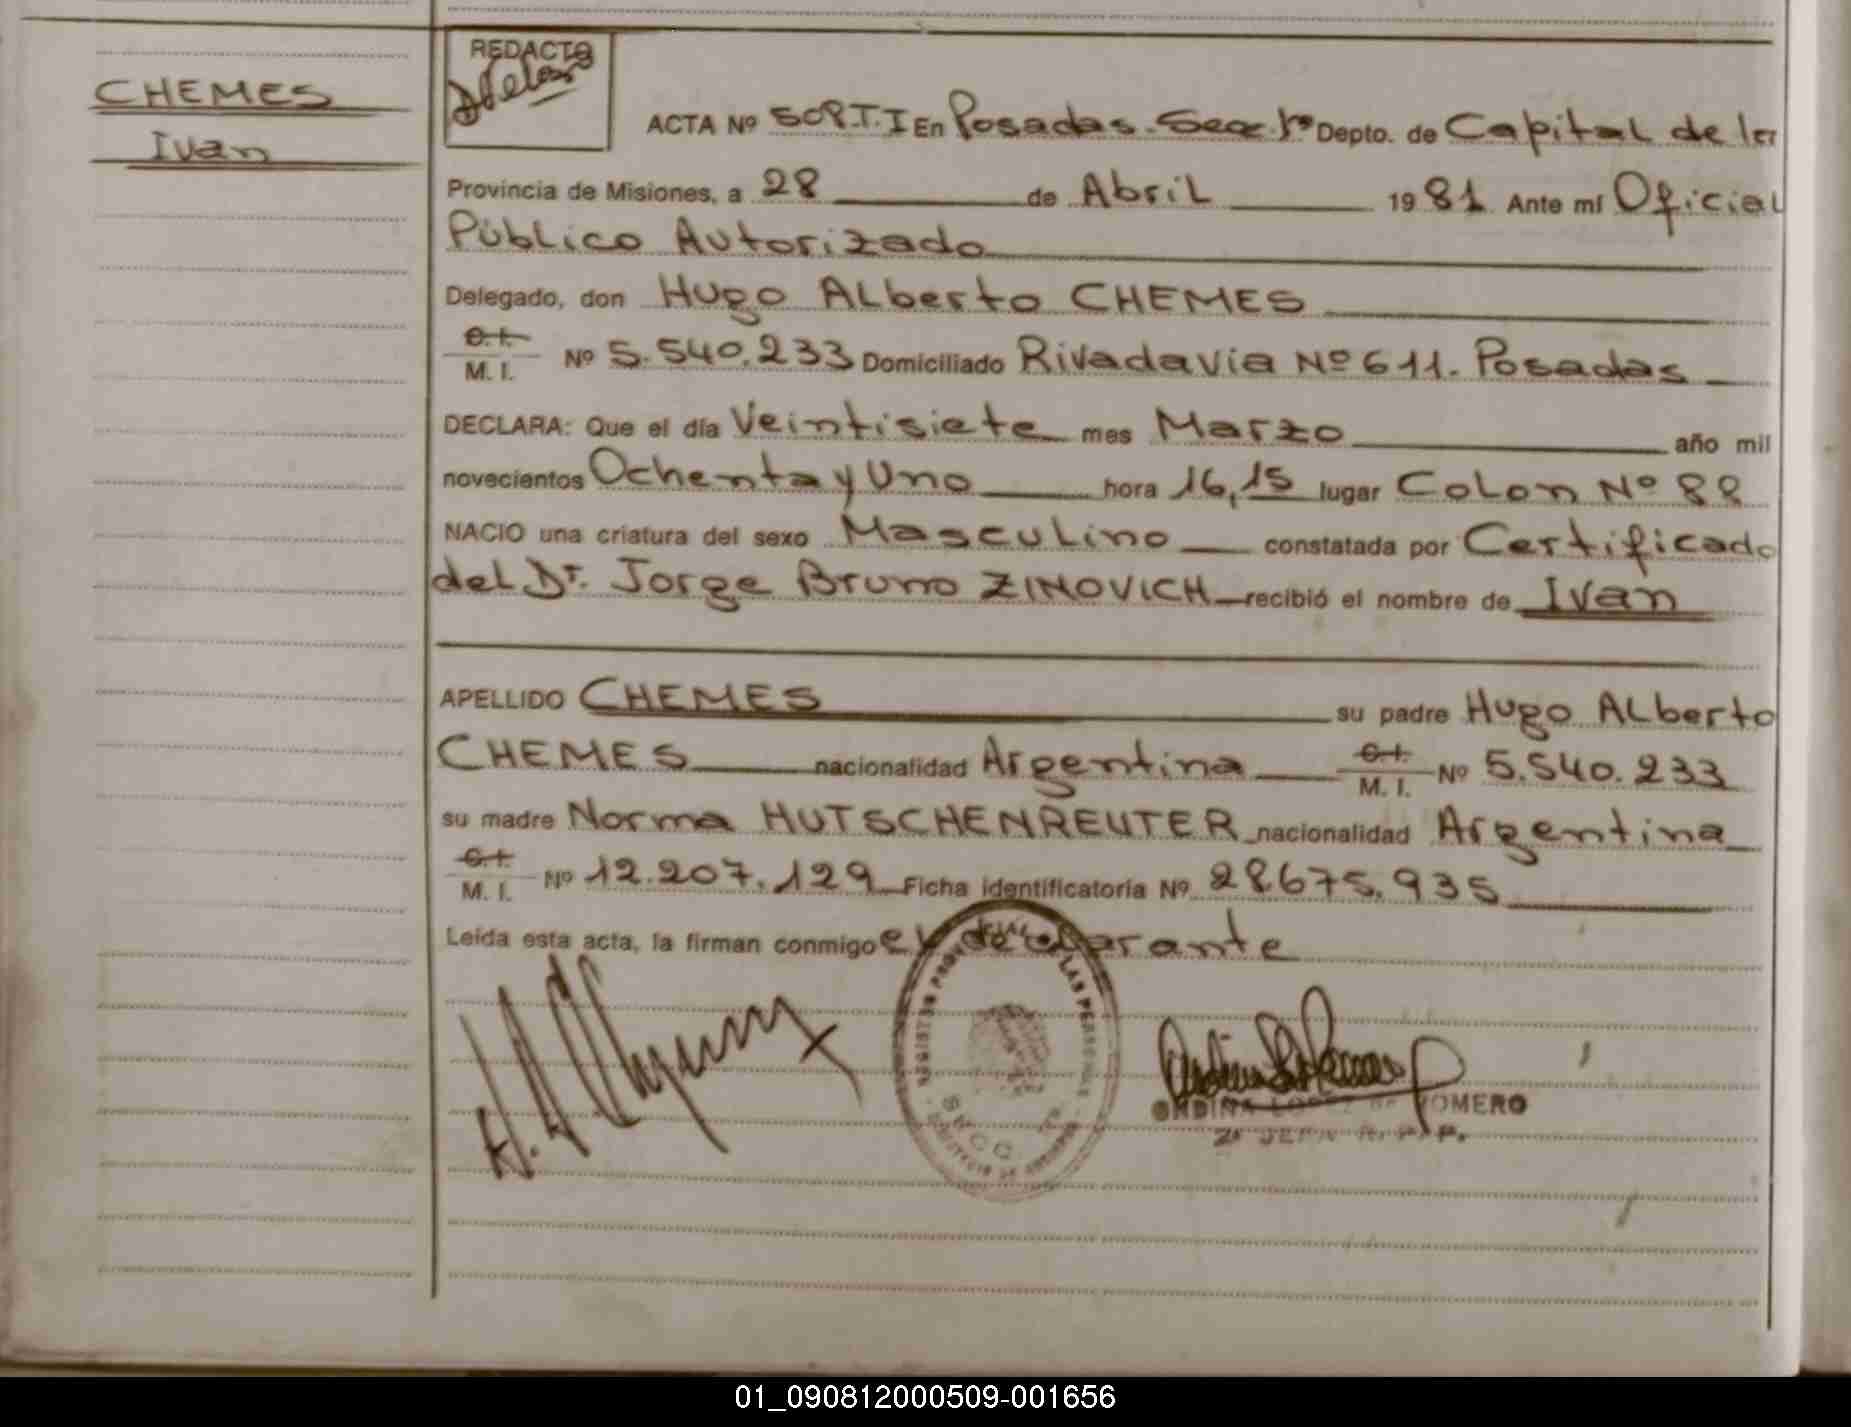 CHEMES
Ivan
REDACTO
ACTA Nº 508.T.I En Posadas. Secc. 1ª Depto. de Capital de la
Provincia de Misiones, a 28 de Abril 1981 Ante mí Oficial
Público Autorizado
Delegado, don Hugo Alberto CHEMES
C.I.
M. I. Nº 5.540.233 Domiciliado Rivadavia Nº 611. Posadas
DECLARA: Que el día Veintisiete mes Marzo año mil
novecientos Ochenta y Uno hora 16,15 lugar Colon Nº 88
NACIO una criatura del sexo Masculino constatada por Certificado
del Dr. Jorge Bruno ZINOVICH recibió el nombre de Ivan
APELLIDO CHEMES su padre Hugo Alberto
CHEMES nacionalidad Argentina C.I. M. I. Nº 5.540.233
su madre Norma HUTSCHENREUTER nacionalidad Argentina
C.I.
M. I. Nº 12.207.129 Ficha identificatoria Nº 28.675.935
Leída esta acta, la firman conmigo el declarante
REGISTRO PROVINCIAL DE LAS PERSONAS
ONDINA LOPEZ DE ROMERO
01_090812000509-001656